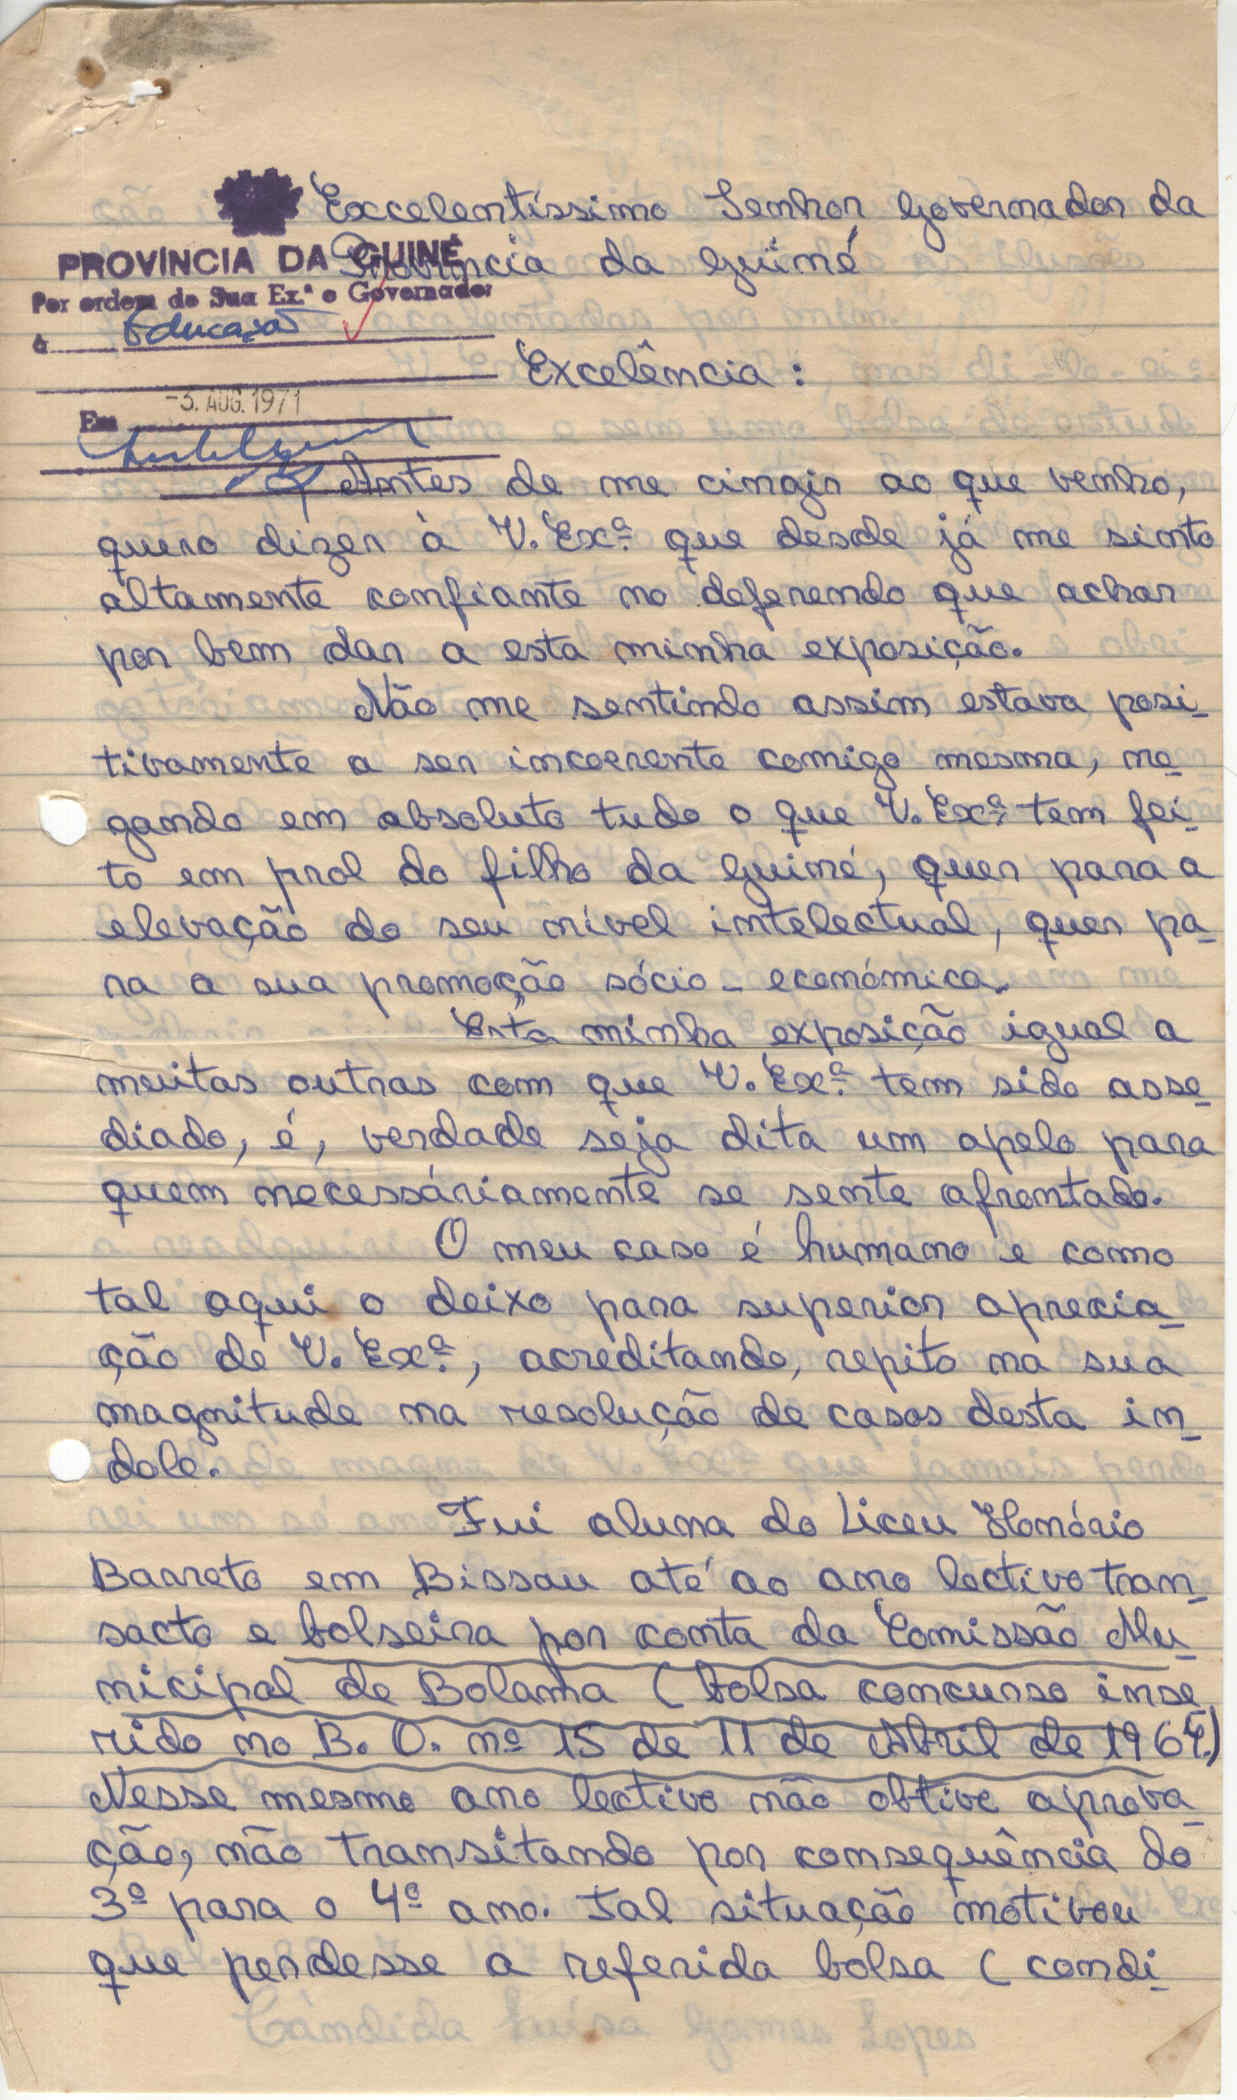 Excelentíssimo Senhor Governador da
Província da Guiné
PROVÍNCIA DA GUINÉ
Por ordem de Sua Ex.ª o Governador
à Educação
Excelência:
Em -3. AUG. 1971
Antes de me cingir ao que venho,
quero dizer à V. Exª. que desde já me sinto
altamente confiante no deferendo que achar
por bem dar a esta minha exposição.
Não me sentindo assim estava posi-
tivamente a ser incoerente comigo mesma, ne-
gando em absoluto tudo o que V. Exª. tem fei-
to em prol do filho da Guiné, quer para a
elevação do seu nível intelectual, quer pa-
ra a sua promoção sócio-económica.
Esta minha exposição igual a
muitas outras com que V. Exª. tem sido asse-
diado, é, verdade seja dita um apelo para
quem necessáriamente se sente afrontado.
O meu caso é humano e como
tal aqui o deixo para superior aprecia-
ção de V. Exª., acreditando, repito na sua
magnitude na resolução de casos desta ín-
dole.
Fui aluna do Liceu Honório
Barreto em Bissau até ao ano lectivo tran-
sacto e bolseira por conta da Comissão Mu-
nicipal de Bolama (bolsa concurso inse-
rido no B. O. nº 15 de 11 de Abril de 1964.)
Nesse mesmo ano lectivo não obtive aprova-
ção, não transitando por consequência do
3º para o 4º ano. Tal situação motivou
que perdesse a referida bolsa (condi-
Cândida Luísa Gomes Lopes